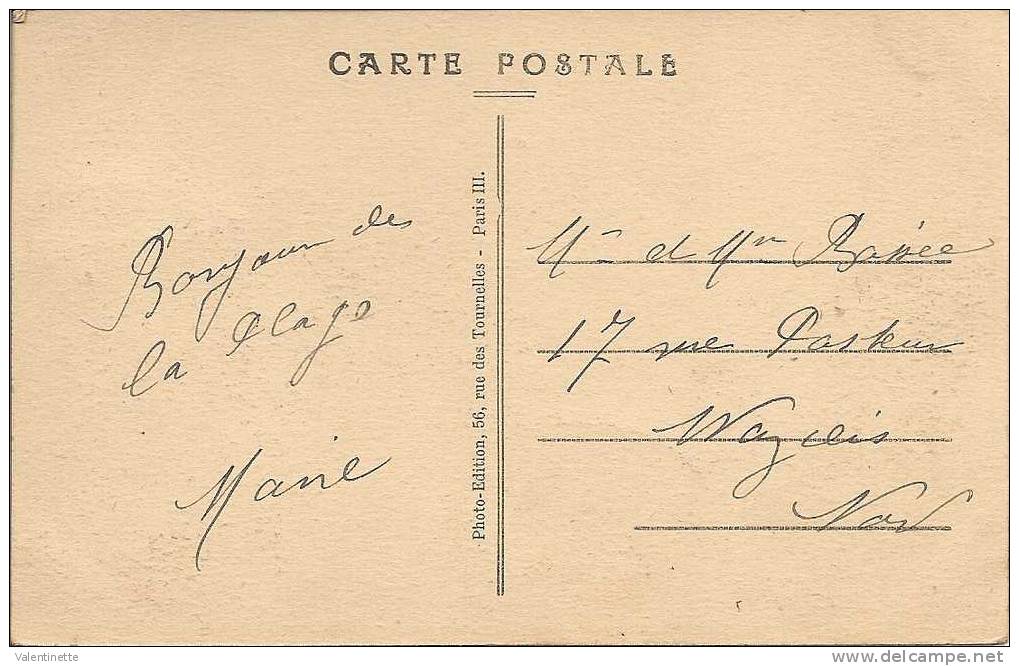 CARTE POSTALE
Bonjour des
la plage
Marie
Photo-Edition, 56, rue des Tournelles - Paris III.
et
17 rue Pasteur
Nord
Valentinette
delcampe.net